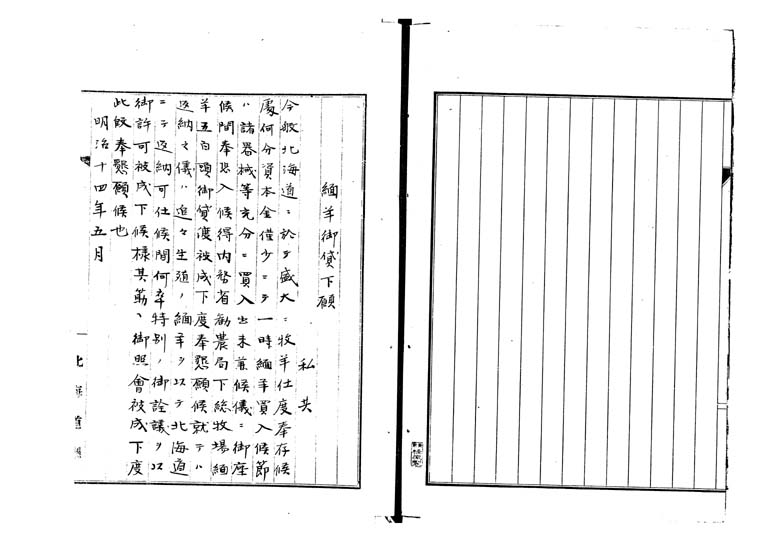 緬羊御貸下願
私共
今般北海道ニ於テ盛大ニ牧羊仕度奉存候
處何分資本金僅少ニテ一時緬羊買入候節
ハ諸器械等充分ニ買入出来兼候儀ニ御座
候間奉恐入候得共内務省勧農局下総牧場緬
羊五百頭御貸渡被成下度奉懇願候就テハ
返納之儀ハ追々生殖ノ緬羊ヲ以テ北海道
ニテ返納可仕候間何卒特別ノ御詮議ヲ以
御許可被成下候様其筋ヘ御照會被成下度
此段奉懇願候也
明治十四年五月